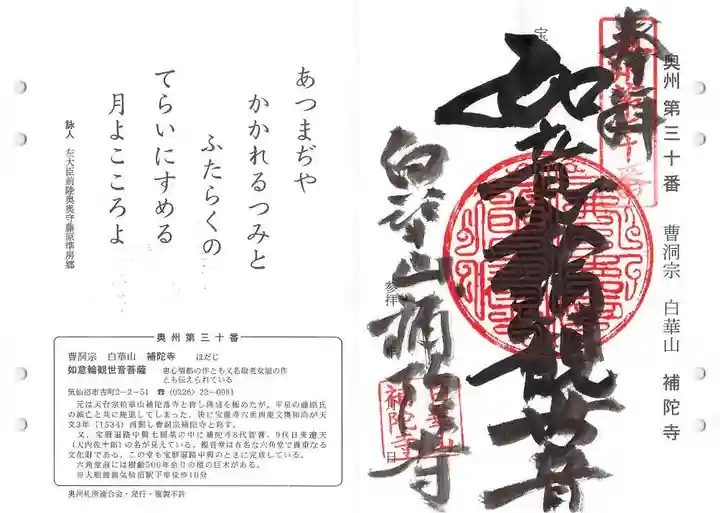 奥州 第三十番 曹洞宗 白華山 補陀寺
奉拝
奥州第三十番
如意輪観世音
白華山補陀寺
補陀寺
参拝
日
あつまぢや
かかれるつみと
ふたらくの
てらいにすめる
月よこころよ
詠人 左大臣前陸奥奥守藤原準房郷
奥州第三十番
曹洞宗 白華山 補陀寺 ほだじ
如意輪観世音菩薩 恵心僧都の作とも又名取老女這の作
とも伝えられている
気仙沼市古町2-2-51 ☎(0226)22-0981
元は天台宗柏峯山補陀落寺と称し隆盛を極めたが、平泉の藤原氏
の滅亡と共に廃退してしまった。後に宝鏡寺六世商英文奥和尚が天
文3年(1534)再興し曹洞宗補陀寺と称す。
又、宝暦遍路中興七開基の中に補陀寺8代智膏、9代目来遼天
(大内佐十郎)の名が見えている。観音堂は有名な六角堂で貴重なる
文化財である。この堂も宝暦遍路中興のときに完成している。
六角堂前には樹齢500年余りの榧の巨木がある。
※大船渡線気仙沼駅下車徒歩10分
奥州札所連合会・発行・複製不許